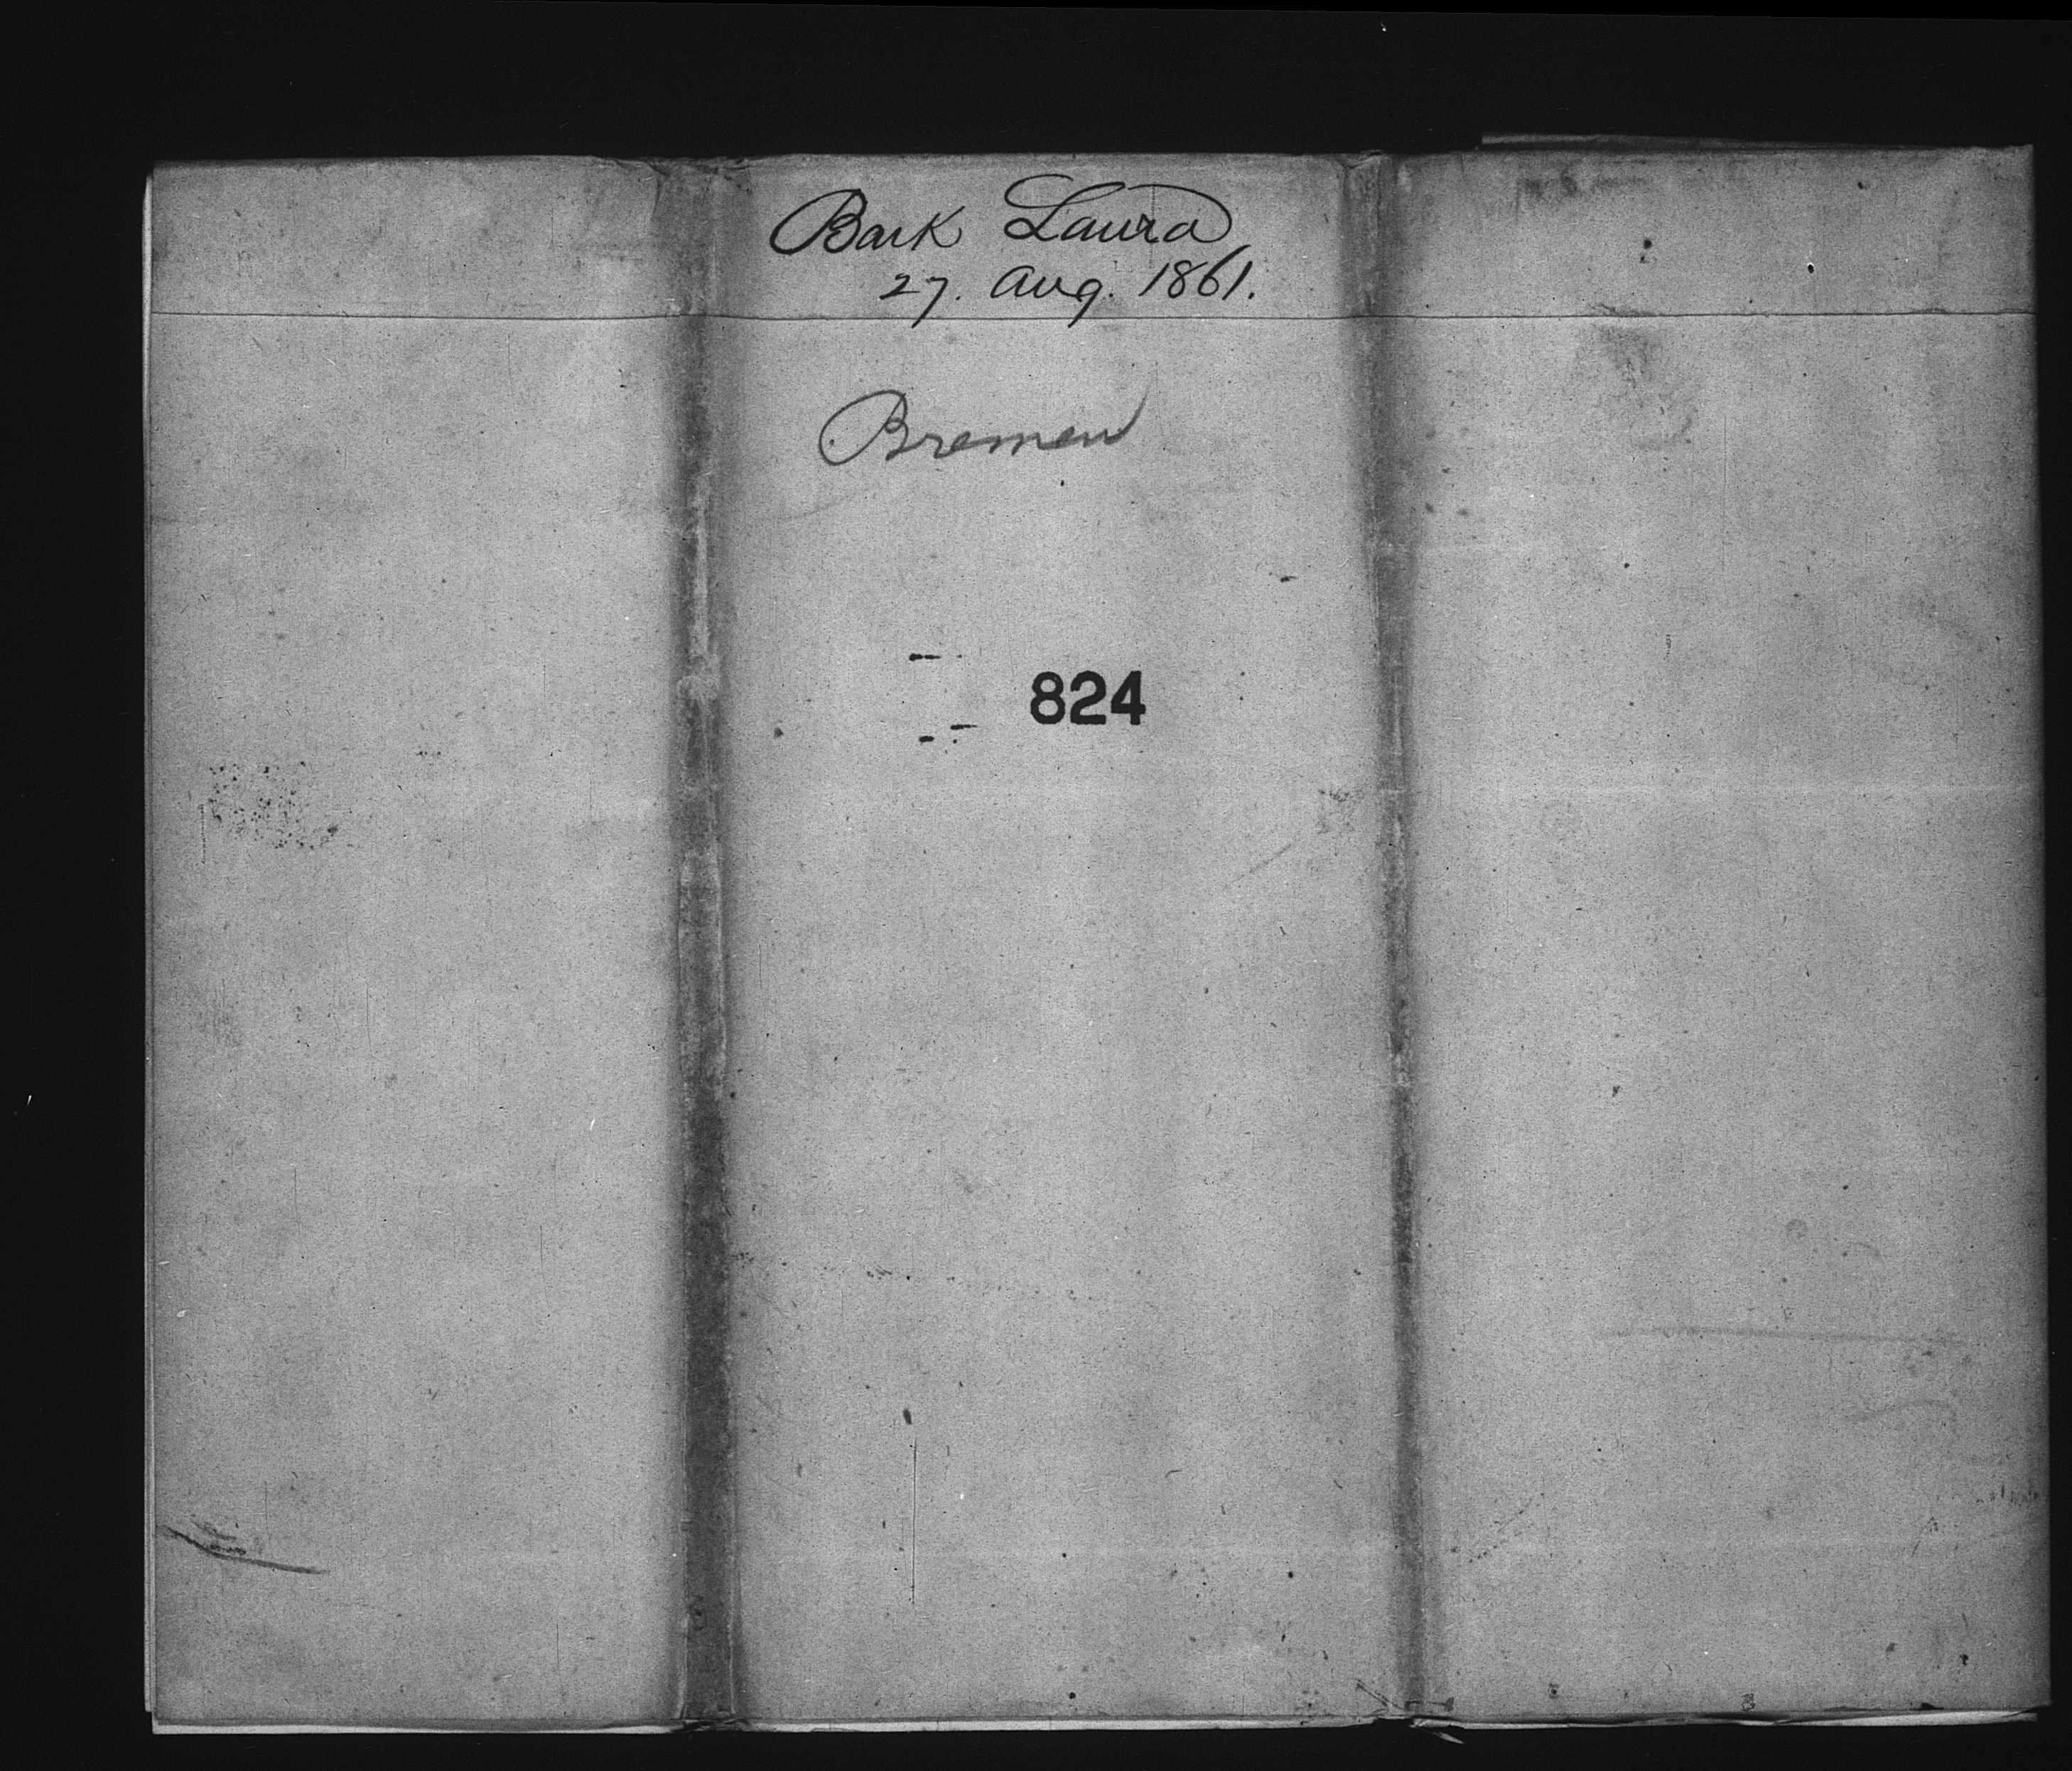 Bark Laura
27. Aug. 1861.
Bremen
824